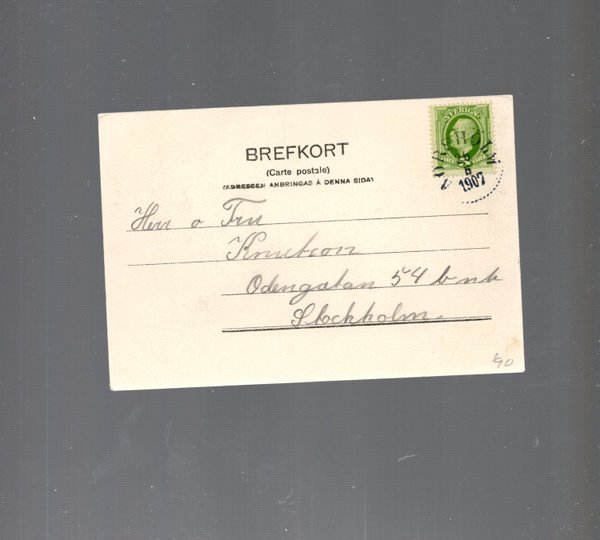 SVERIGE
1907
BREFKORT
(Carte postale)
(ADRESSEN ANBRINGAS Å DENNA SIDA)
Herr o Fru
Knutson
Odengatan 54 b nb
Stockholm.
40